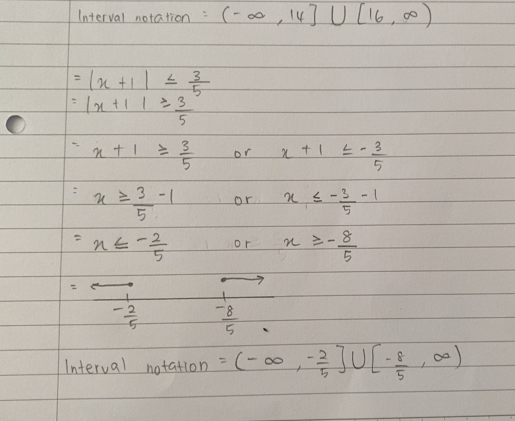 Interval notation = (-∞, 14] U [16, ∞)
= |x + 1| ≤ 3/5
= |x + 1| ≥ 3/5
= x + 1 ≥ 3/5 or x + 1 ≤ -3/5
= x ≥ 3/5 - 1 or x ≤ -3/5 - 1
= x ≤ -2/5 or x ≥ -8/5
=
-2/5 -8/5
Interval notation = (-∞, -2/5] U [-8/5, ∞)